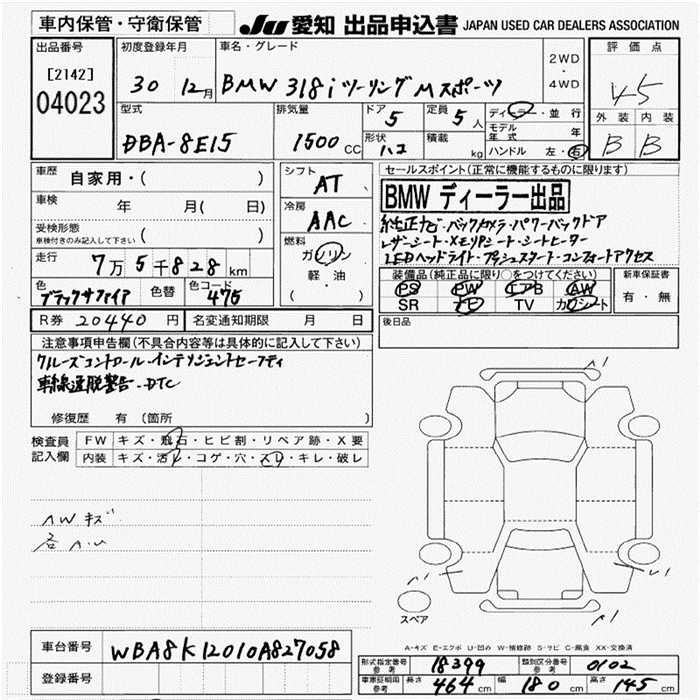 車内保管・守衛保管
JU 愛知 出品申込書 JAPAN USED CAR DEALERS ASSOCIATION
出品番号
[2142]
04023
初度登録年月
30 12月
車名・グレード
BMW 318i ツーリング Mスポーツ
2WD
・
4WD
評価点
45
外装 内装
B B
型式
DBA-8E15
排気量
1500 CC
ドア
5
形状
ハコ
定員
5人
積載
kg
ディーラー・並行
モデル年式 年
ハンドル 左・右
車歴
自家用・( )
車検
年 月( 日)
受検形態
車検付きのみ記入して下さい ( )
走行
7万5千828km
色
ブラックサファイア
色替
色コード
475
シフト
AT
冷房
AAC
燃料
ガソリン
軽・油
( )
セールスポイント(正常に機能するものに限ります)
BMW ディーラー出品
純正ナビ・バックカメラ・パワーバックドア
レザーシート・メモリシート・シートヒーター
LEDヘッドライト・プッシュスタート・コンフォートアクセス
装備品(純正品に限り○をつけてください)
PS PW エアB AW
SR ナビ TV カワシート
新車保証書
有・無
R券 20440円
名変通知期限 月 日
後日品
注意事項申告欄(不具合内容等は具体的に記入して下さい)
クルーズコントロール・インテリジェントセーフティ
車線逸脱警告・DTC
修復歴 有 (箇所
検査員
記入欄
FW キズ・飛石・ヒビ割・リペア跡・X要
内装 キズ・汚レ・コゲ・穴・スレ・キレ・破レ
AWキズ
各A.U
A1
A1
U1
A1
スペア
A-キズ E-エクボ U-凹み W-補修跡 S-サビ C-腐食 XX-交換済
車台番号 WBA8K12010A827058
登録番号
形式指定番号 参考 18399
類別区分番号 参考 0102
車庫証明用 参考 長さ 464cm 幅 180cm 高さ 145cm